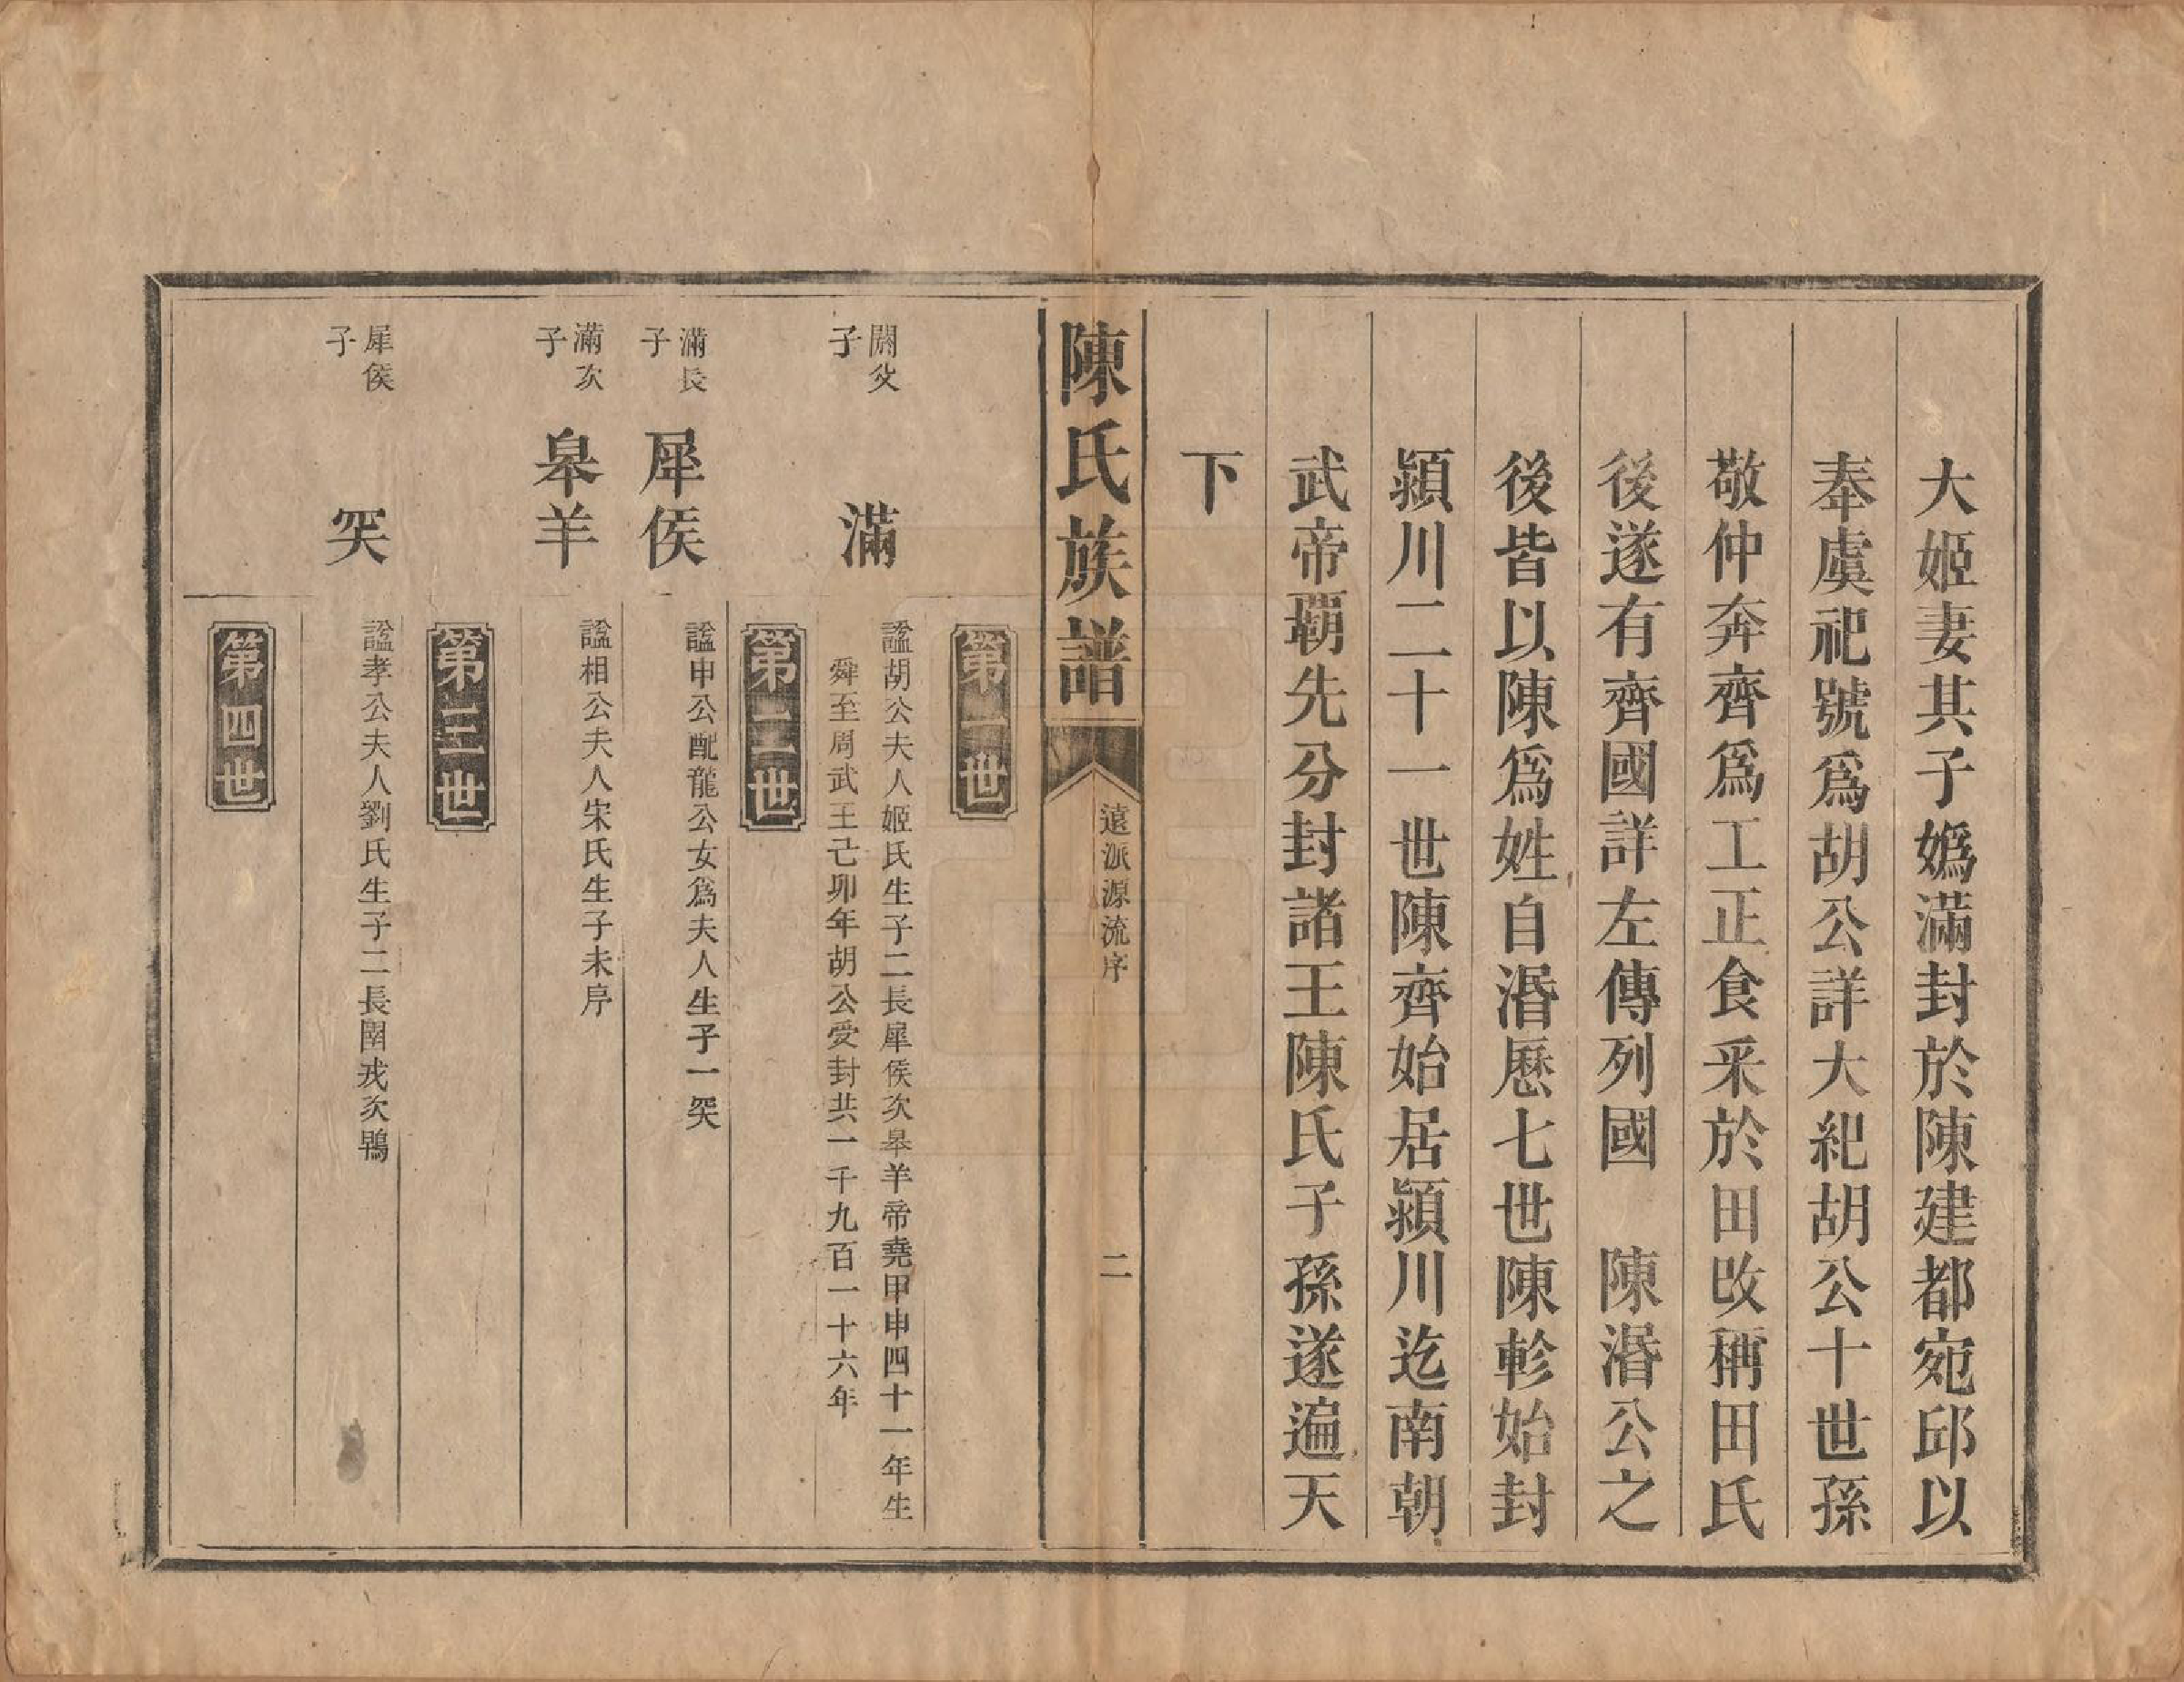 大姬妻其子媯滿封於陳建都宛邱以
奉虞祀號爲胡公詳大紀胡公十世孫
敬仲奔齊爲工正食采於田改稱田氏
後遂有齊國詳左傳列國　陳湣公之
後皆以陳爲姓自湣歷七世陳軫始封
潁川二十一世陳齊始居潁川迄南朝
武帝霸先分封諸王陳氏子孫遂遍天
下
陳氏族譜
遠派源流序
二
第一世
閼父
子
滿
諡胡公夫人姬氏生子二長犀侯次皋羊帝堯甲申四十一年生
舜至周武王己卯年胡公受封共一千九百一十六年
第二世
滿長
子
犀侯
諡申公配龍公女爲夫人生子一突
滿次
子
皋羊
諡相公夫人宋氏生子未序
第三世
犀侯
子
突
諡孝公夫人劉氏生子二長圉戎次鴨
第四世